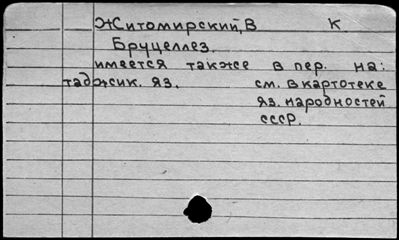 Житомирский, В К.
Бруцеллез.
имеется также в пер. на:
таджик. яз. см. в картотеке
яз. народностей
СССР.